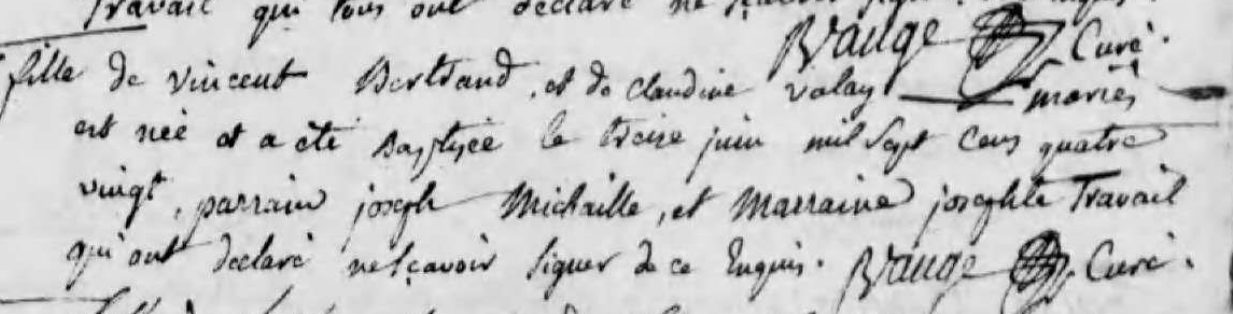 Travail qui tous ont déclaré ne sçavoir signer
Vauge Curé.
fille de vincent Bertrand, et de claudine valay mariés
est née et a été Baptisée le treize juin mil sept cens quatre
vingt, parrain joseph Michaille, et Marraine josephte Travail
qui ont déclaré ne sçavoir signer de ce Enquis. Vauge Curé.